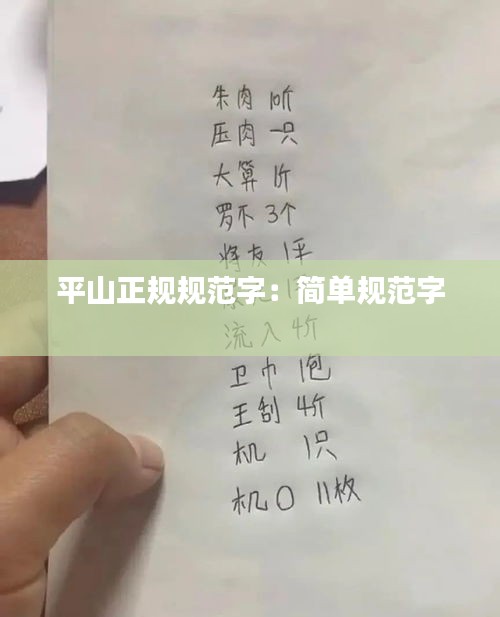 朱肉 10斤
压肉 一只
大算 1斤
罗不 3个
将友 1平
平山正规规范字：简单规范字
流入 4介
卫巾 1包
王刮 4介
机 1只
机〇 11枚